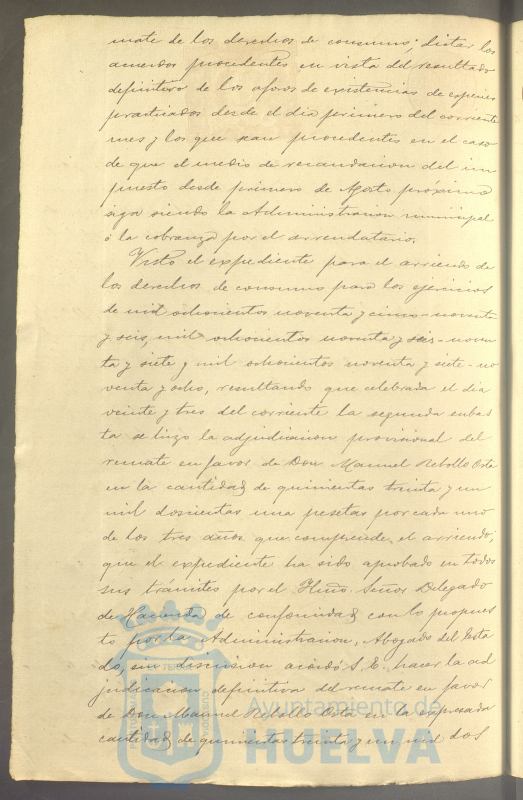 mate de los derechos de consumo; dictar los
acuerdos procedentes en vista del resultado
definitivo de los aforos de existencias de especies
practicados desde el dia primero del corriente
mes y los que sean procedentes en el caso
de que el medio de recaudacion del im
puesto desde primero de Agosto proximo
siga siendo la Administracion municipal
ó la cobranza por el arrendatario.
Visto el expediente para el arriendo de
los derechos de consumo para los ejercicios
de mil ochocientos noventa y cinco-noventa
y seis, mil ochocientos noventa y seis-noven
ta y siete y mil ochocientos noventa y siete-no
venta y ocho, resultando que celebrada el dia
veinte y tres del corriente la segunda subas
ta se hizo la adjudicacion provisional del
remate en favor de Don Manuel Rebollo Orta
en la cantidad de quinientas treinta y un
mil doscientas una pesetas por cada uno
de los tres años que comprende el arriendo;
que el expediente ha sido aprobado en todos
sus trámites por el Iltmo. Señor Delegado
de Hacienda de conformidad con lo propues
to por la Administracion, Abogado del Esta
do, sin discusion acordó S. E. hacer la ad
judicacion definitiva del remate en favor
de Don Manuel Rebollo Orta en la expresada
cantidad de quinientas treinta y un mil dos
Ayuntamiento de
HUELVA